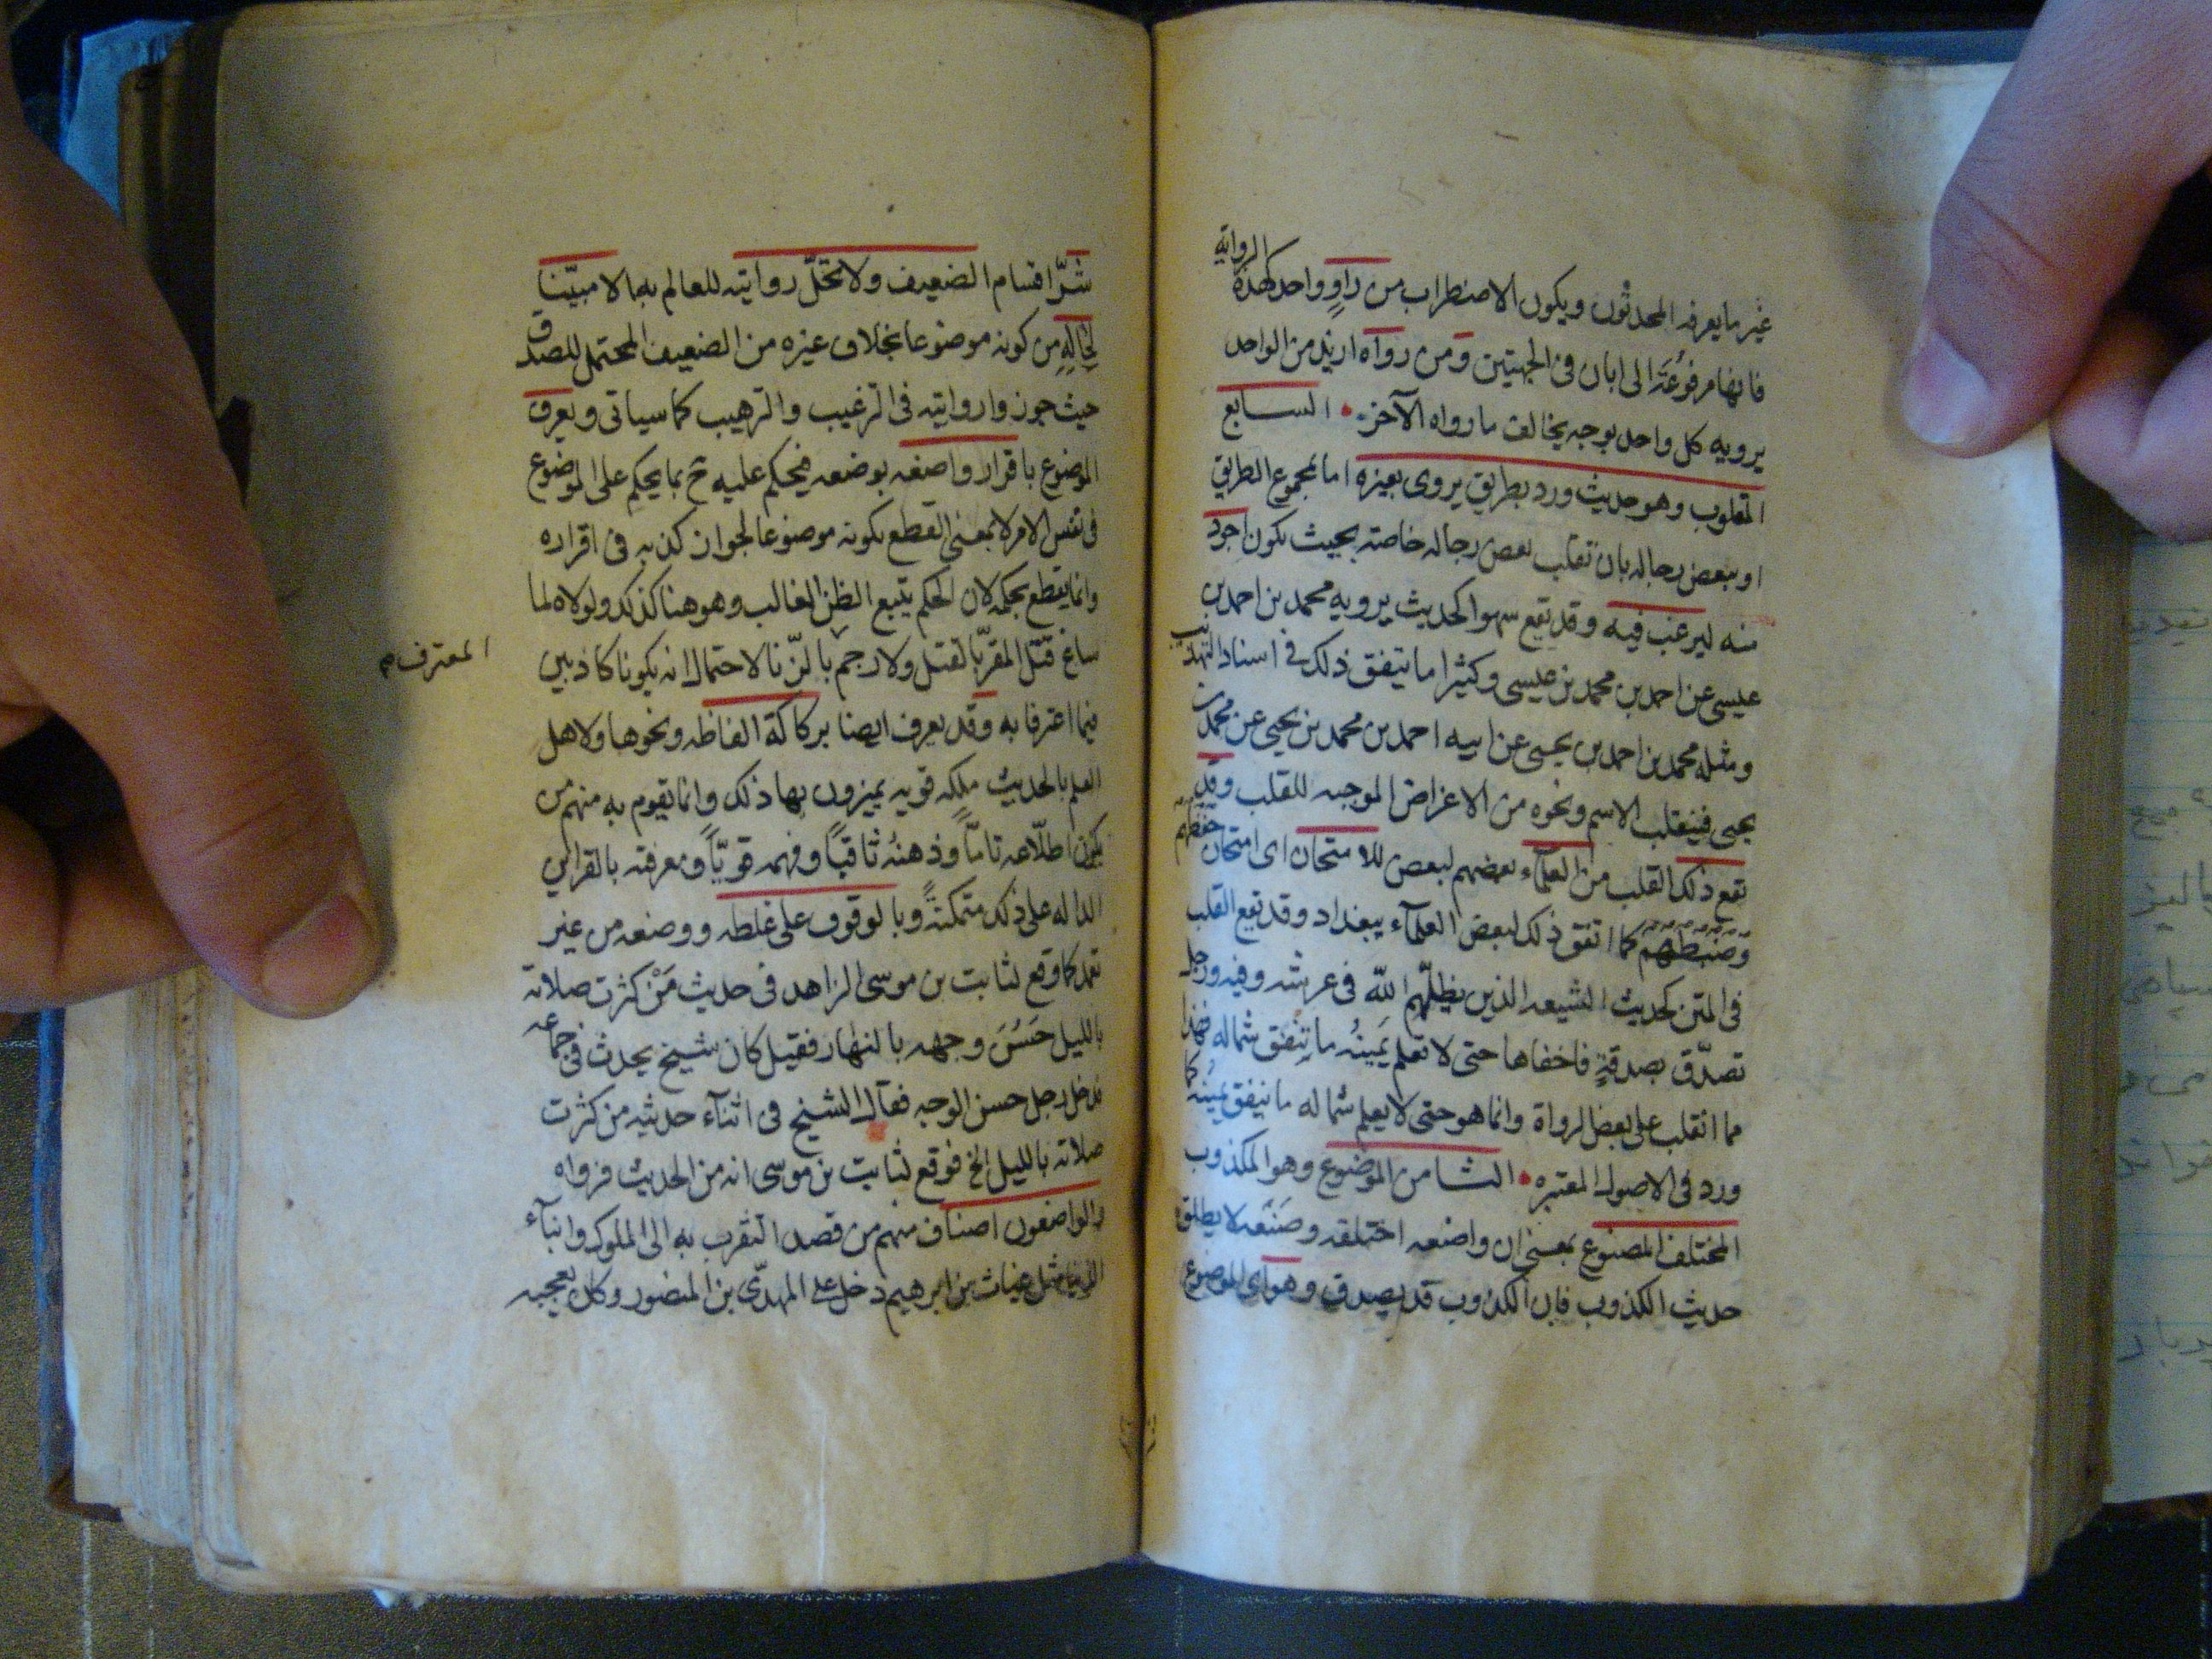 غير ما يعرفه المحدثون ويكون الاضطراب من راوٍ واحد كهذه الرواية
فانها مرفوعة الى ابان فى الجهتين ومن رواة ازيد من الواحد
يرويه كل واحد بوجه يخالف ما رواه الآخر • السابع
المقلوب وهو حديث ورد بطريق يروى بغيره اما بمجموع الطريق
او ببعض رجاله بان تقلب بعض رجاله خاصة بحيث يكون اجود
منه ليرغب فيه وقد يقع سهوا كحديث يرويه محمد بن احمد بن
عيسى عن احمد بن محمد بن عيسى وكثيرا ما يتفق ذلك فى اسناد التهذيب
ومثله محمد بن احمد بن يحيى عن ابيه احمد بن محمد بن يحيى عن محمد بن
يحيى فينقلب الاسم ونحوه من الاغراض الموجبه للقلب وقد
يقع ذلك القلب من العلمآء بعضهم لبعض للامتحان اى امتحان حفظهم
وضبطهم كما اتفق ذلك لبعض العلمآء ببغداد وقد يقع القلب
فى المتن كحديث السبعه الذين يظلّهم اللّه فى عرشه وفيه ورجل
تصدّق بصدقةٍ فاخفاها حتى لا تعلم يَمينُه ما تنفق شماله فهذا
مما انقلب على بعض الرواة وانما هو حتى لا يعلم شماله ما ينفق يمينُه كما
ورد فى الاصول المعتبره • الثامن الموضوع وهو المكذوب
المختلق المصنوع بمعنى ان واضعه اختلقه وصَنَعَه لا يطلق
حديث الكذوب فان الكذوب قد يصدق وهو اى الموضوع
شرّ اقسام الضعيف ولا تحلّ روايته للعالم به الا مبيّنا
لحاله من كونه موضوعا بخلاف غيره من الضعيف المحتمل للصدق
حيث جوزوا روايته فى الترغيب والترهيب كما سياتى ويعرف
الموضوع باقرار واضعه بوضعه فيحكم عليه ح بما يحكم على الموضوع
فى نفس الامر لا بمعنى القطع بكونه موضوعا لجواز كذبه فى اقراره
وانما يقطع بحكمه لان الحكم يتبع الظن الغالب وهو هنا كذلك ولولاه لما
ساغ قتل المقرّ بالقتل ولا رجم بالزّنا لاحتمال انه يكونا كاذبين
المعترف
فيما اعترفا به وقد يعرف ايضا بركاكة الفاظه ونحوها ولاهل
العلم بالحديث ملكه قويه يميزون بها ذلك وانما يقوم به منهم من
يكون اطلّاعه تامّاً وذهنُه ثاقباً وفهمه قويّاً ومعرفته بالقراين
الداله على ذلك متمكنةً وبالوقوف على غلطه ووضعه من غير
تعمد كما وقع لثابت بن موسى الزاهد فى حديث مَنْ كثرت صلاته
بالليل حَسُنَ وجهه بالنهار فقيل كان شيخ يحدث فى جماعه
فدخل رجل حسن الوجه فقال الشيخ فى اثنآء حديثه من كثرت
صلاته بالليل الخ فوقع لثابت بن موسى انه من الحديث فرواه
والواضعون اصناف منهم من قصد التقرب به الى الملوك وابنآء
الدنيا مثل غياث بن ابرهيم دخل على المهدّى بن المنصور وكان يعجبه